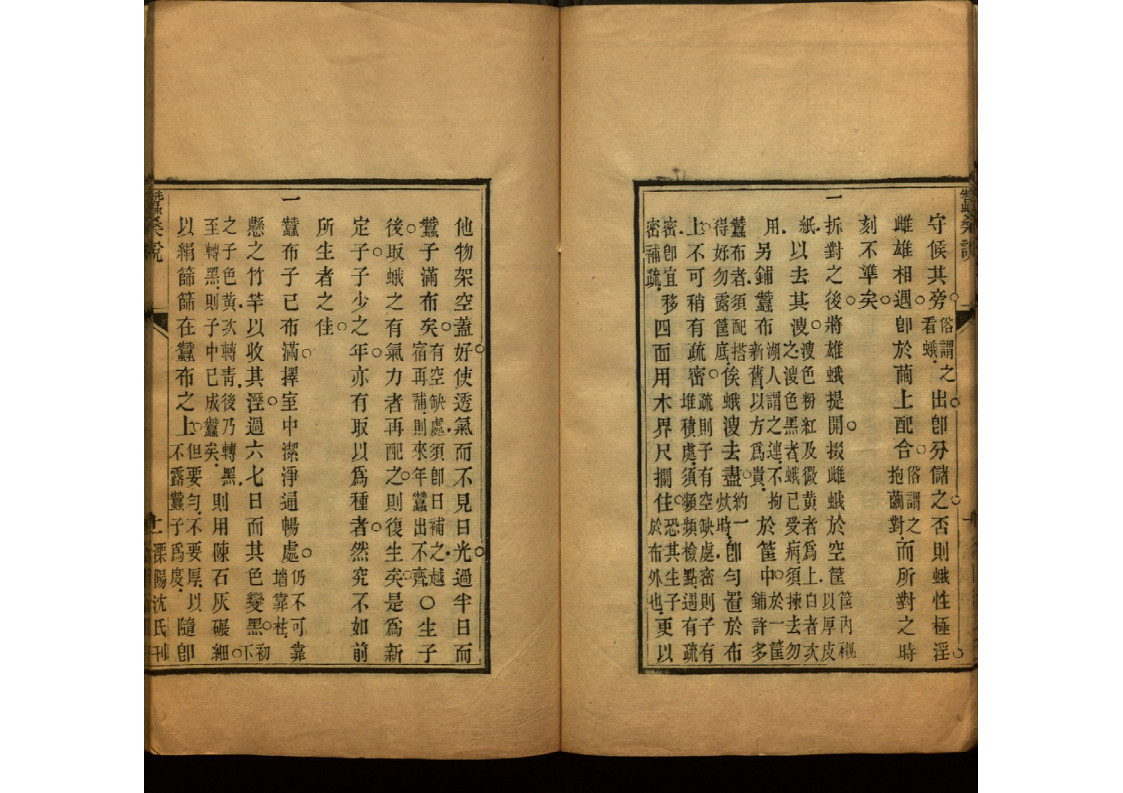 守候其旁俗謂之看蛾出卽分儲之否則蛾性極淫
雌雄相遇卽於繭上配合俗謂之抱繭對而所對之時
刻不準矣
一拆對之後將雄蛾提開掇雌蛾於空筐筐內襯以厚皮
紙以去其溲溲色粉紅及微黃者爲上白者次之溲色黑者蛾已受病須揀去勿
用另鋪蠶布湖人謂之連不拘新舊以方爲貴於筐中於一筐鋪許多
蠶布者須配搭得好勿露筐底俟蛾溲去盡約一炊時卽勻置於布
上不可稍有疏密疏則子有空缺處密則子有堆積處須頻頻檢點遇有疏
密卽宜移密補疏四面用木界尺攔住恐其生子於布外也更以
他物架空蓋好使透氣而不見日光過半日而
蠶子滿布矣有空缺處須卽日補之越宿再補則來年蠶出不齊○生子
後取蛾之有氣力者再配之則復生矣是爲新
定子子少之年亦有取以爲種者然究不如前
所生者之佳
一蠶布子已布滿擇室中潔淨通暢處仍不可靠墻靠柱
懸之竹竿以收其溼過六七日而其色變黑初下
之子色黃次轉靑後乃轉黑至轉黑則子中已成蠶矣則用陳石灰碾細
以絹篩篩在蠶布之上但要勻不要厚以不露蠶子爲度隨卽
蠶桑說 十一 溧陽沈氏刊